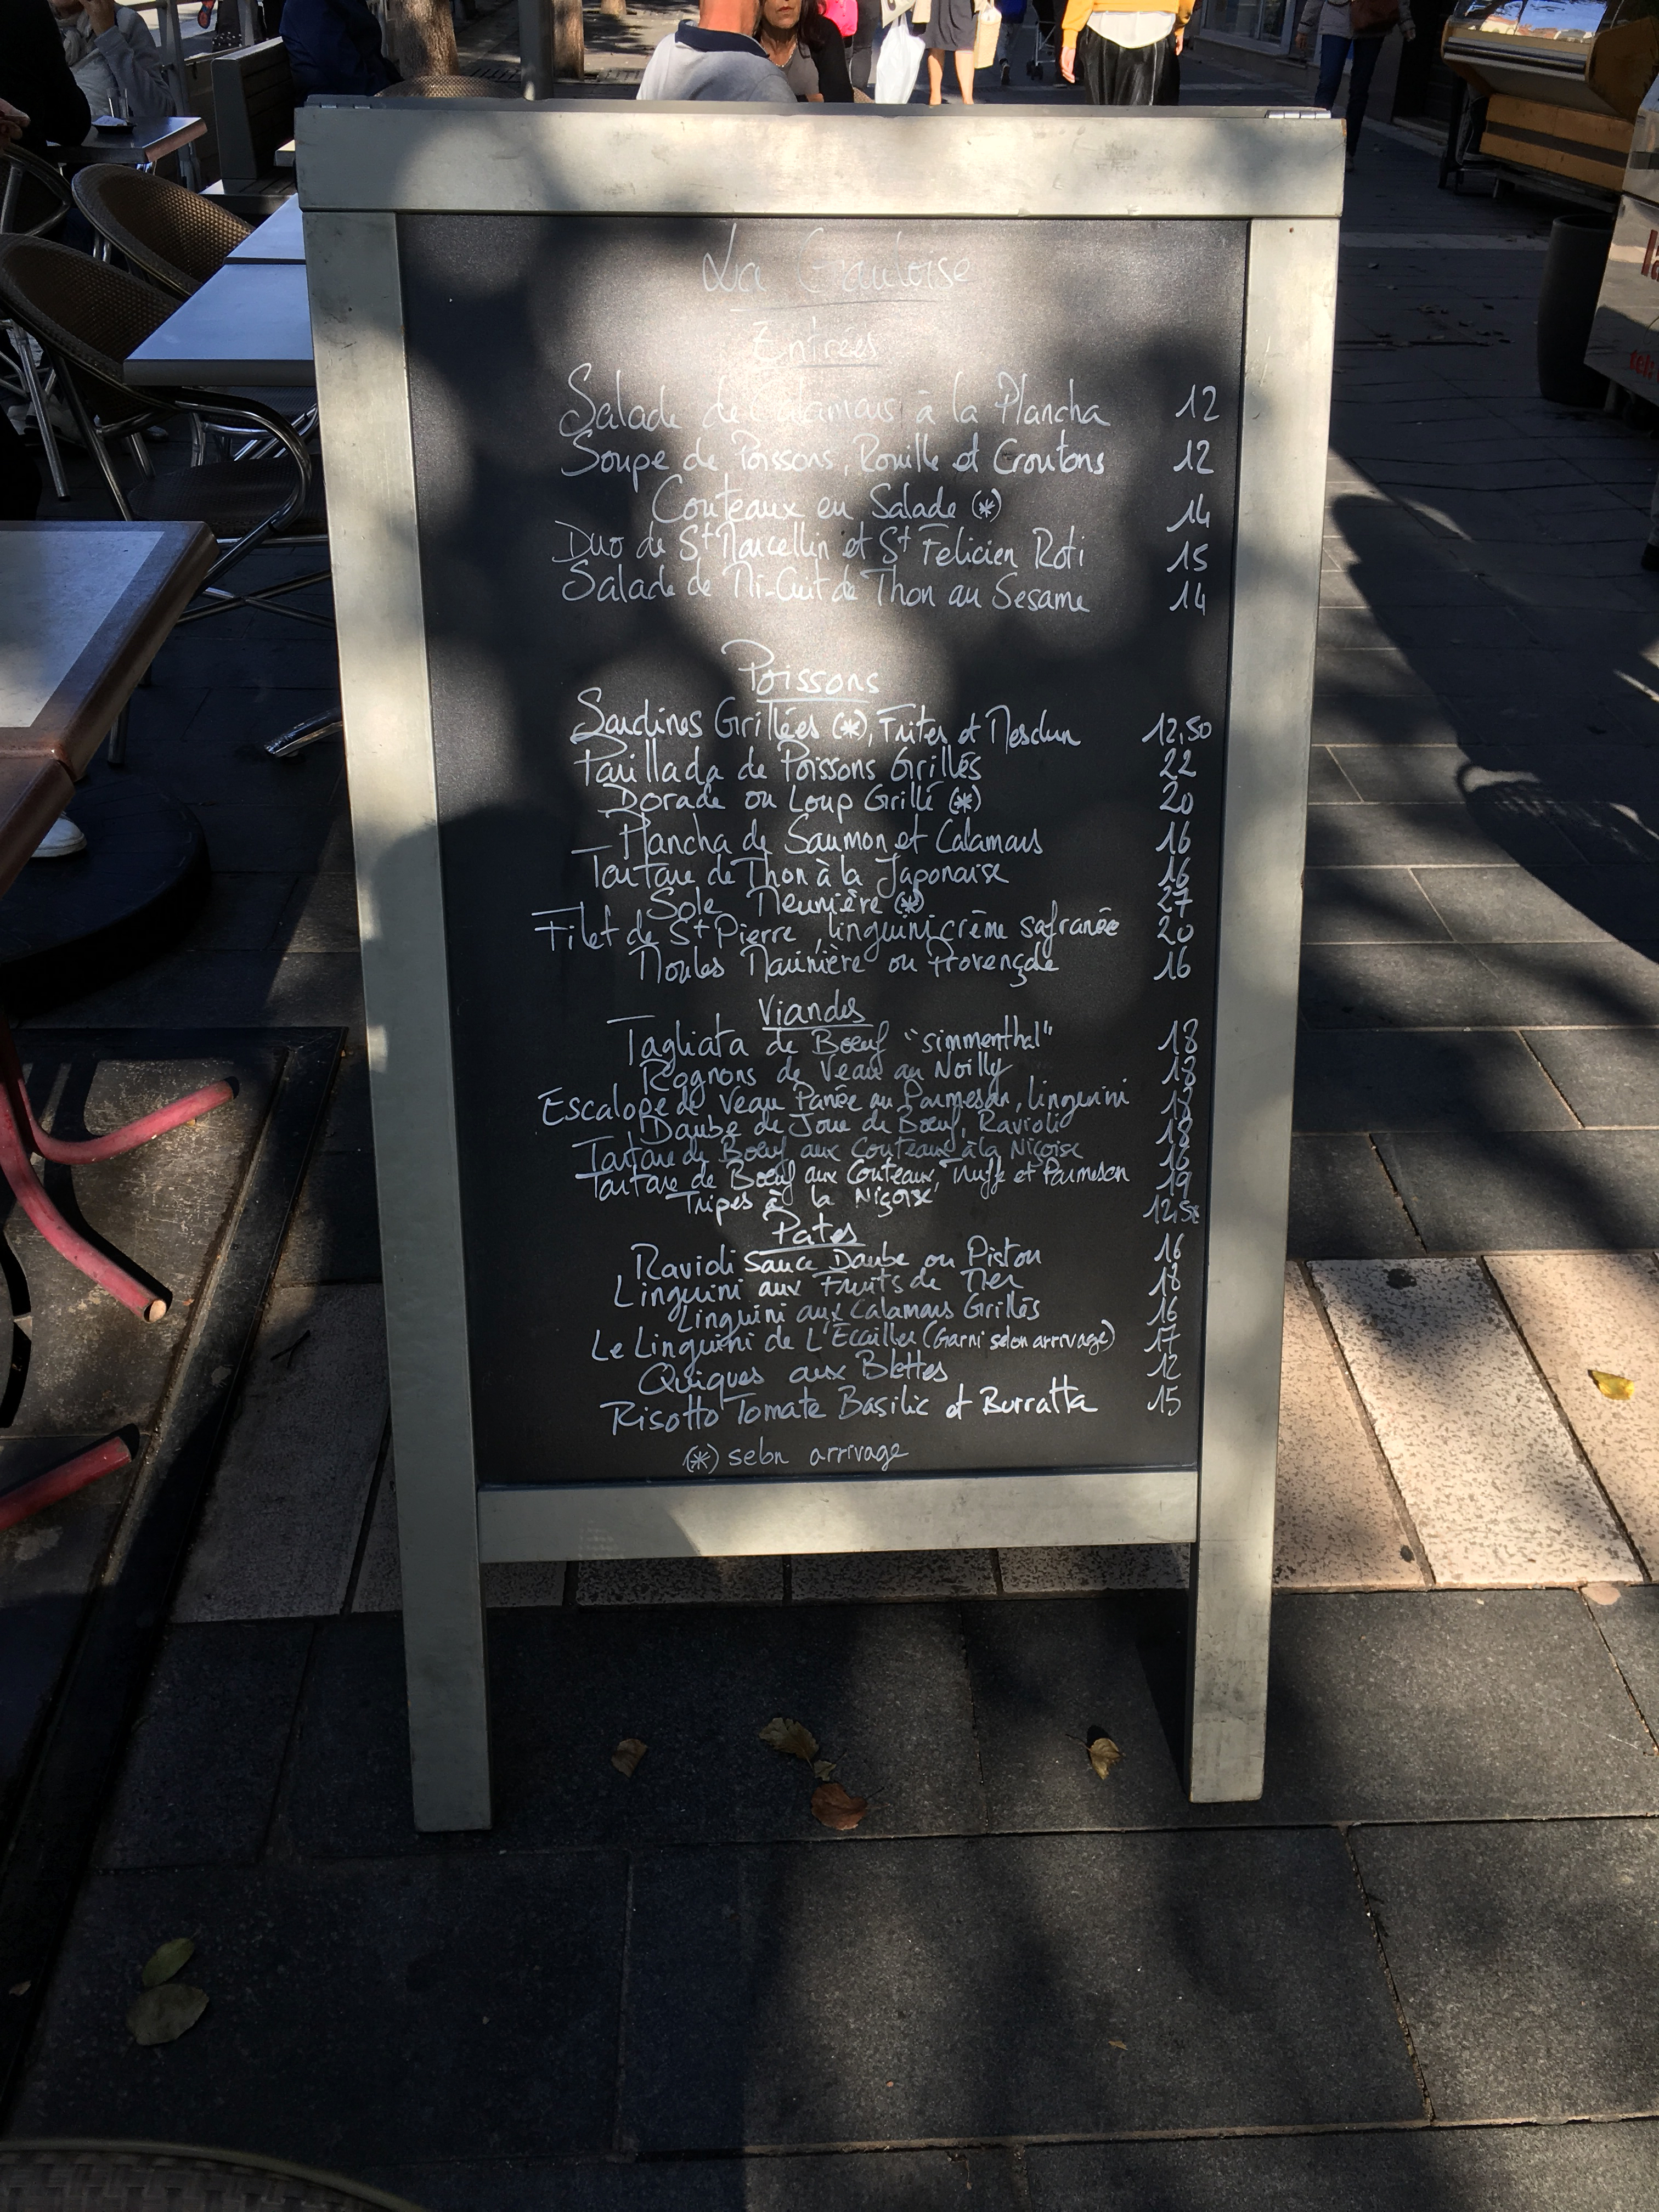 La Gauloise
Entrées
Salade de Calamars à la Plancha 12
Soupe de Poissons, Rouille et Croutons 12
Couteaux en Salade (*) 14
Duo de St Marcellin et St Felicien Roti 15
Salade de Mi-Cuit de Thon au Sesame 14
Poissons
Sardines Grillées (*), Frites et Mesclun 12,50
Parillada de Poissons Grillés 22
Dorade ou Loup Grillé (*) 20
Plancha de Saumon et Calamars 16
Tartare de Thon à la Japonaise 16
Sole Meunière (*) 27
Filet de St Pierre, linguini crème safranée 20
Moules Marinière ou Provençale 16
Viandes
Tagliata de Bœuf "simmenthal" 18
Rognons de Veau au Noilly 18
Escalope de Veau Panée au Parmesan, linguini 18
Daube de Joue de Bœuf, Ravioli 18
Tartare de Bœuf aux Couteaux à la Niçoise 16
Tartare de Bœuf aux Couteaux, Truffe et Parmesan 19
Tripes à la Niçoise 12,50
Pates
Ravioli Sauce Daube ou Pistou 16
Linguini aux Fruits de Mer 18
Linguini aux Calamars Grillés 16
Le Linguini de L'Ecailler (Garni selon arrivage) 17
Quiques aux Blettes 12
Risotto Tomate Basilic et Burratta 15
(*) selon arrivage